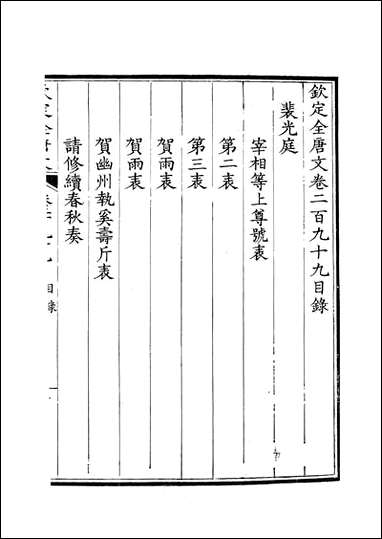 欽定全唐文卷二百九十九目錄
裴光庭
宰相等上尊號表
第二表
第三表
賀雨表
賀雨表
賀幽州執奚壽斤表
請修續春秋奏
目錄